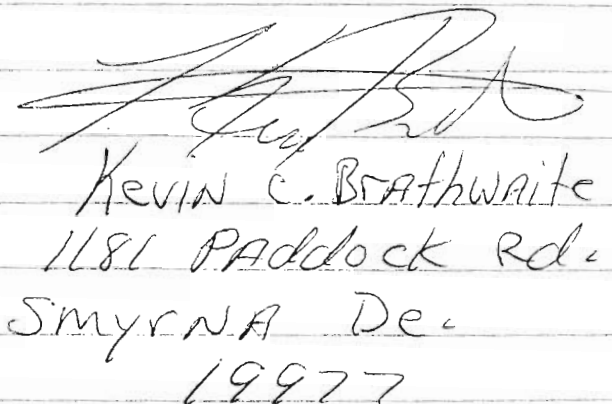 Kevin C. Brathwaite
1181 Paddock Rd.
Smyrna De.
19977